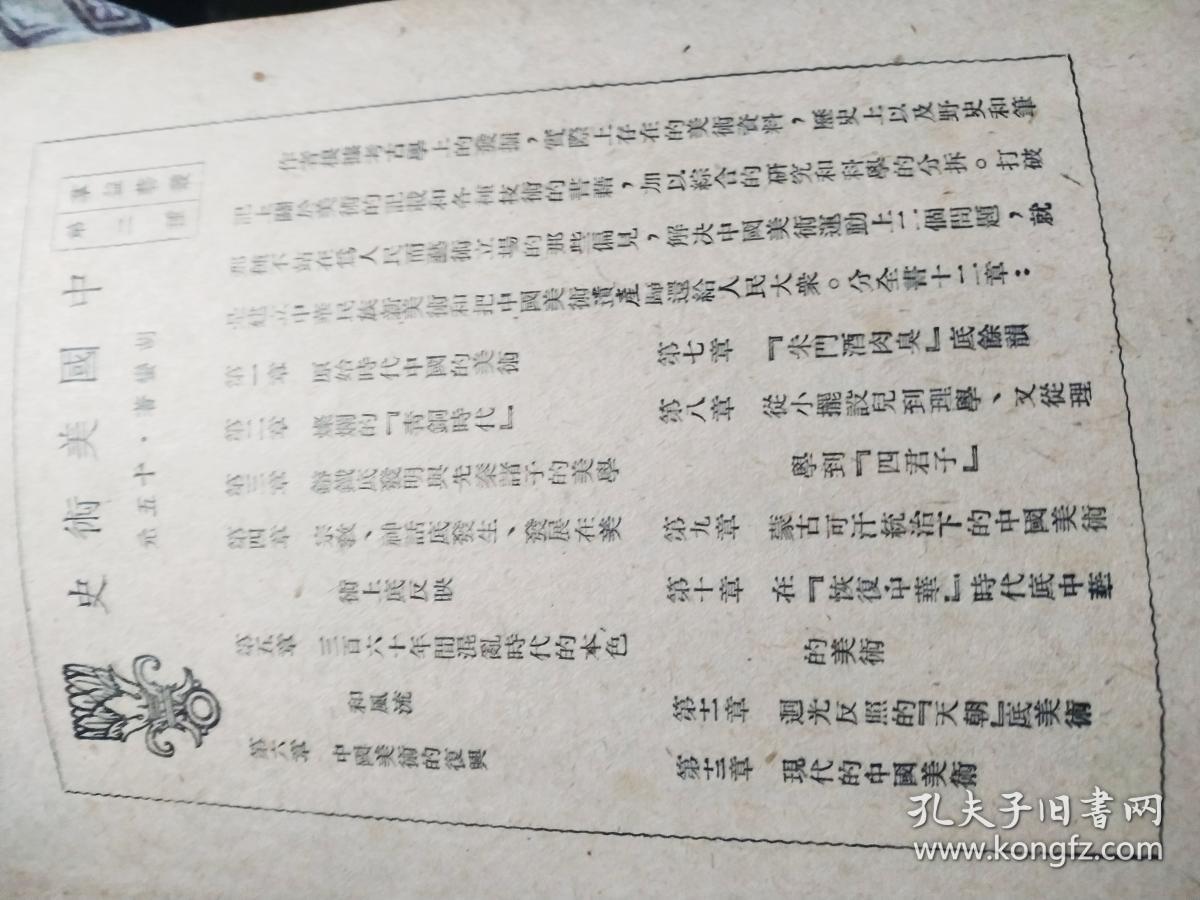 羣益藝叢
第二種
中國美術史
胡蠻著・十五元
作者根據考古學上的發掘，實際上存在的美術資料，歷史上以及野史和筆
記上關於美術的記載和各種技術的書籍，加以綜合的研究和科學的分拆。打破
那種不站在爲人民而藝術立場的那些偏見，解決中國美術運動上二個問題，就
是建立中華民族新美術和把中國美術遺產歸還給人民大衆。分全書十二章：
第一章　原始時代中國的美術
第二章　燦爛的『青銅時代』
第三章　鎔鐵底發明與先秦諸子的美學
第四章　宗教、神話底發生、發展在美
術上底反映
第五章　三百六十年間混亂時代的本色
和風流
第六章　中國美術的復興
第七章　『朱門酒肉臭』底餘韻
第八章　從小擺設兒到理學、又從理
學到『四君子』
第九章　蒙古可汗統治下的中國美術
第十章　在『恢復中華』時代底中華
的美術
第十一章　迴光反照的『天朝』底美術
第十二章　現代的中國美術
孔夫子旧书网
www.kongfz.com